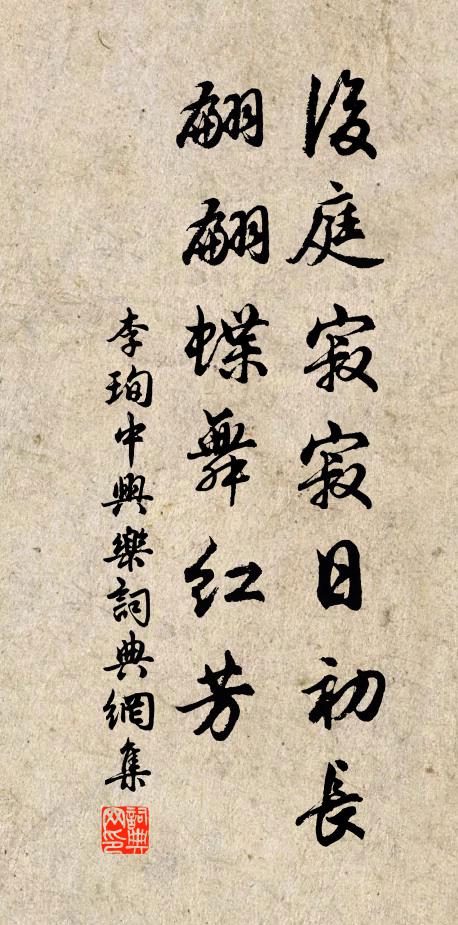 後庭寂寂日初長
翩翩蝶舞紅芳
李珣中興樂詞典網集
詞典网印